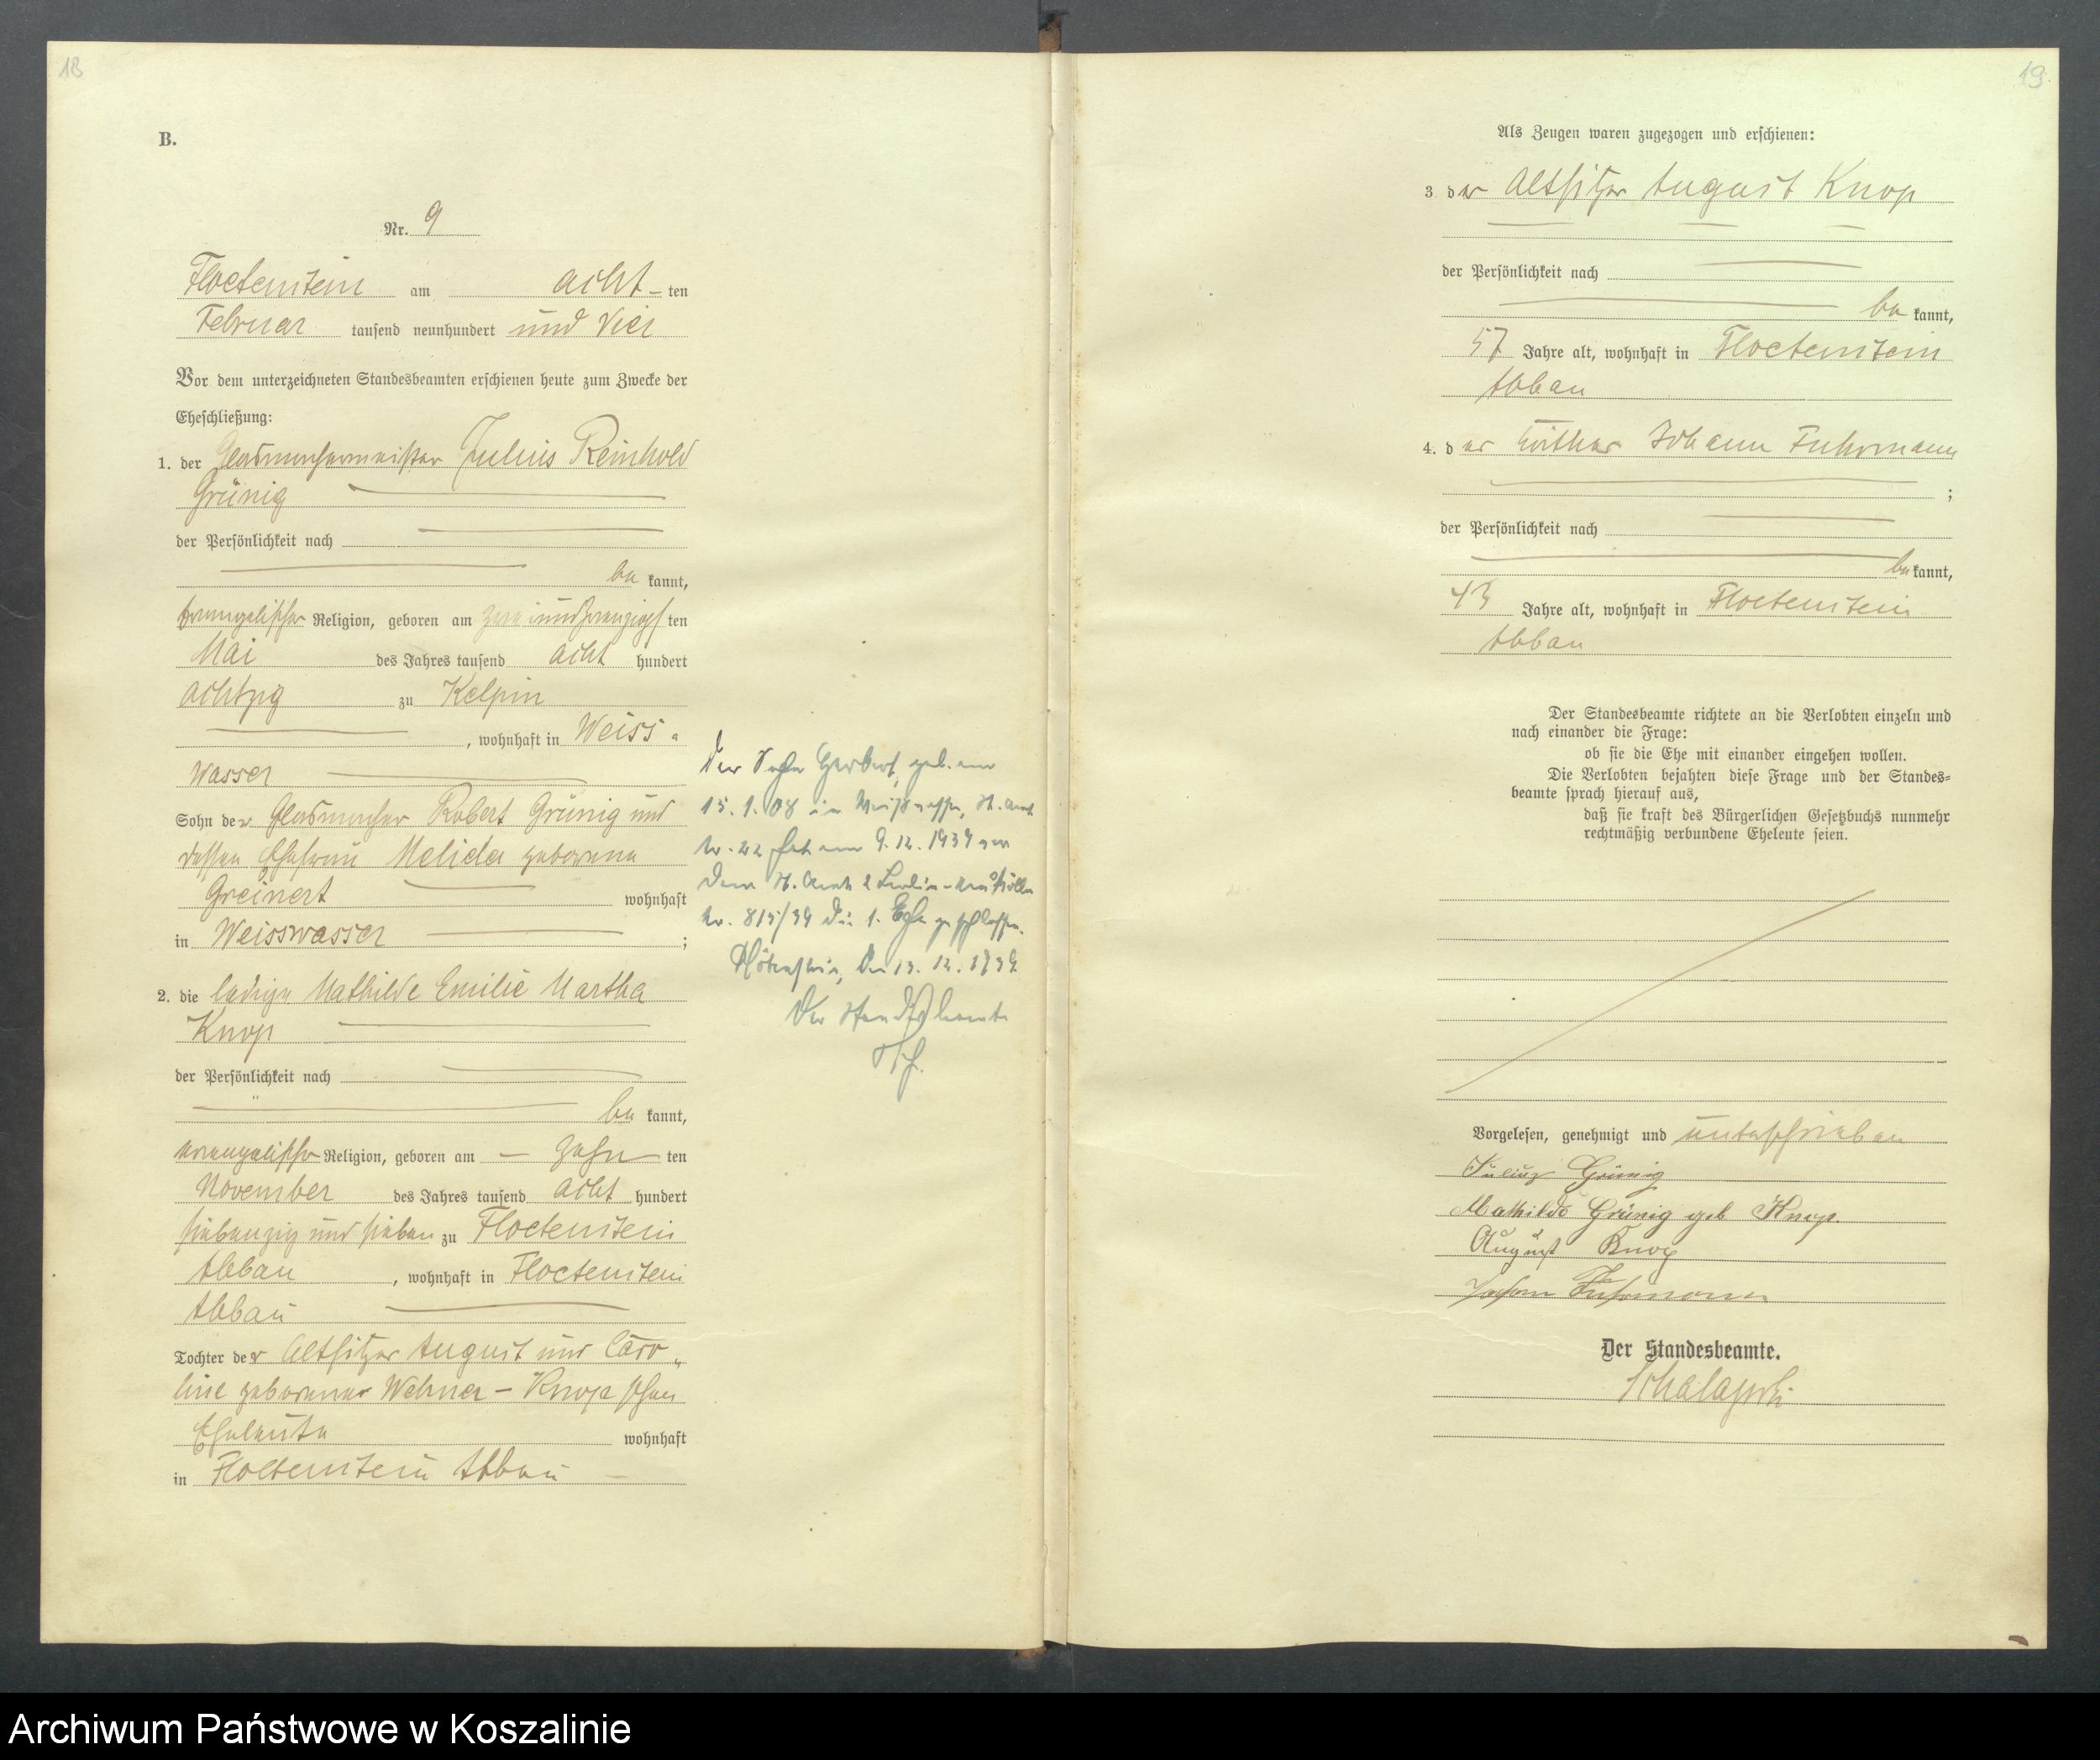 18
B.
Nr. 9
Floetenstein am acht-ten
Februar tausend neunhundert und vier
Vor dem unterzeichneten Standesbeamten erschienen heute zum Zwecke der
Eheschließung:
1. der Glasmachermeister Julius Reinhold
Grünig
der Persönlichkeit nach
be kannt,
evangelischer Religion, geboren am zweiundzwanzigsten
Mai des Jahres tausend acht hundert
achtzig zu Kelpin
, wohnhaft in Weiss-
wasser
Sohn der Glasmacher Robert Grünig und
dessen Ehefrau Melida geborene
Greinert wohnhaft
in Weisswasser ;
2. die ledige Mathilde Emilie Martha
Knop
der Persönlichkeit nach
be kannt,
evangelischer Religion, geboren am - zehn ten
November des Jahres tausend acht hundert
siebenzig und sieben zu Floetenstein
Abbau , wohnhaft in Floetenstein
Abbau
Tochter der Altsitzer August und Caro-
line geborener Wehner - Knop'schen
Eheleute wohnhaft
in Floetenstein Abbau
Der Sohn Herbert, geb. am
15. 1. 08 in Weißwasser, St. Amt
Nr. 22 hat am 9. 12. 1939 vor
dem St. Amt 2 Berlin-Neukölln
Nr. 815/39 die 1. Ehe geschlossen.
Flötenstein, den 13. 12. 1939.
Der Standesbeamte
19
Als Zeugen waren zugezogen und erschienen:
3. der Altsitzer August Knop
der Persönlichkeit nach
be kannt,
57 Jahre alt, wohnhaft in Floetenstein
Abbau
4. der Wirth Johann Fuhrmann
;
der Persönlichkeit nach
be kannt,
43 Jahre alt, wohnhaft in Floetenstein
Abbau
Der Standesbeamte richtete an die Verlobten einzeln und
nach einander die Frage:
ob sie die Ehe mit einander eingehen wollen.
Die Verlobten bejahten diese Frage und der Standes-
beamte sprach hierauf aus,
daß sie kraft des Bürgerlichen Gesetzbuchs nunmehr
rechtmäßig verbundene Eheleute seien.
Vorgelesen, genehmigt und unterschrieben
Julius Grünig
Mathilde Grünig geb Knop.
August Knop
Johann Fuhrmann
Der Standesbeamte.
Archiwum Państwowe w Koszalinie